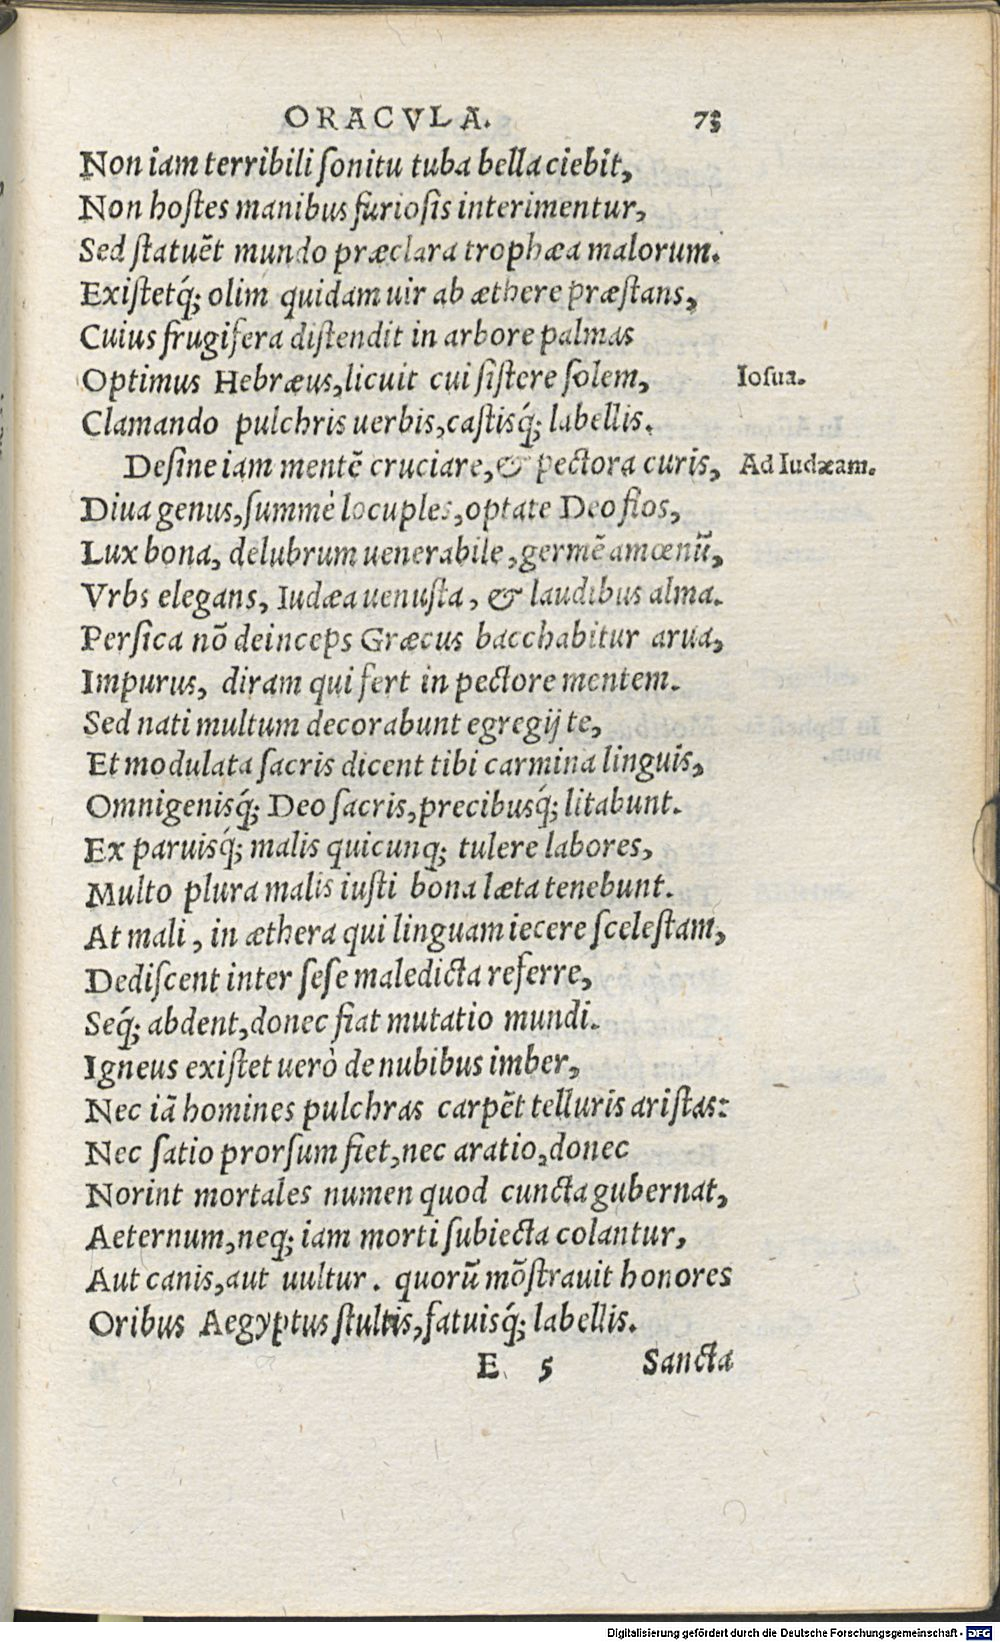 ORACVLA. 73
Non iam terribili ſonitu tuba bella ciebit,
Non hoſtes manibus furioſis interimentur,
Sed ſtatuẽt mundo præclara trophæa malorum.
Exiſtetq́; olim quidam uir ab æthere præſtans,
Cuius frugifera diſtendit in arbore palmas
Optimus Hebræus, licuit cui ſiſtere ſolem, Ioſua.
Clamando pulchris uerbis, caſtisq́; labellis.
Deſine iam mentẽ cruciare, & pectora curis, Ad Iudæam.
Diua genus, ſummè locuples, optate Deo flos,
Lux bona, delubrum uenerabile, germẽ amœnũ,
Vrbs elegans, Iudæa uenuſta, & laudibus alma.
Perſica nõ deinceps Græcus bacchabitur arua,
Impurus, diram qui fert in pectore mentem.
Sed nati multum decorabunt egregij te,
Et modulata ſacris dicent tibi carmina linguis,
Omnigenisq́; Deo ſacris, precibusq́; litabunt.
Ex paruisq́; malis quicunq; tulere labores,
Multo plura malis iuſti bona læta tenebunt.
At mali, in æthera qui linguam iecere ſceleſtam,
Dediſcent inter ſeſe maledicta referre,
Seq́; abdent, donec fiat mutatio mundi.
Igneus exiſtet uerò de nubibus imber,
Nec iã homines pulchras carpẽt telluris ariſtas:
Nec ſatio prorſum fiet, nec aratio, donec
Norint mortales numen quod cuncta gubernat,
Aeternum, neq; iam morti ſubiecta colantur,
Aut canis, aut uultur. quorũ mõſtrauit honores
Oribus Aegyptus ſtultis, fatuisq́; labellis.
E 5 Sancta
Digitalisierung gefördert durch die Deutsche Forschungsgemeinschaft - DFG